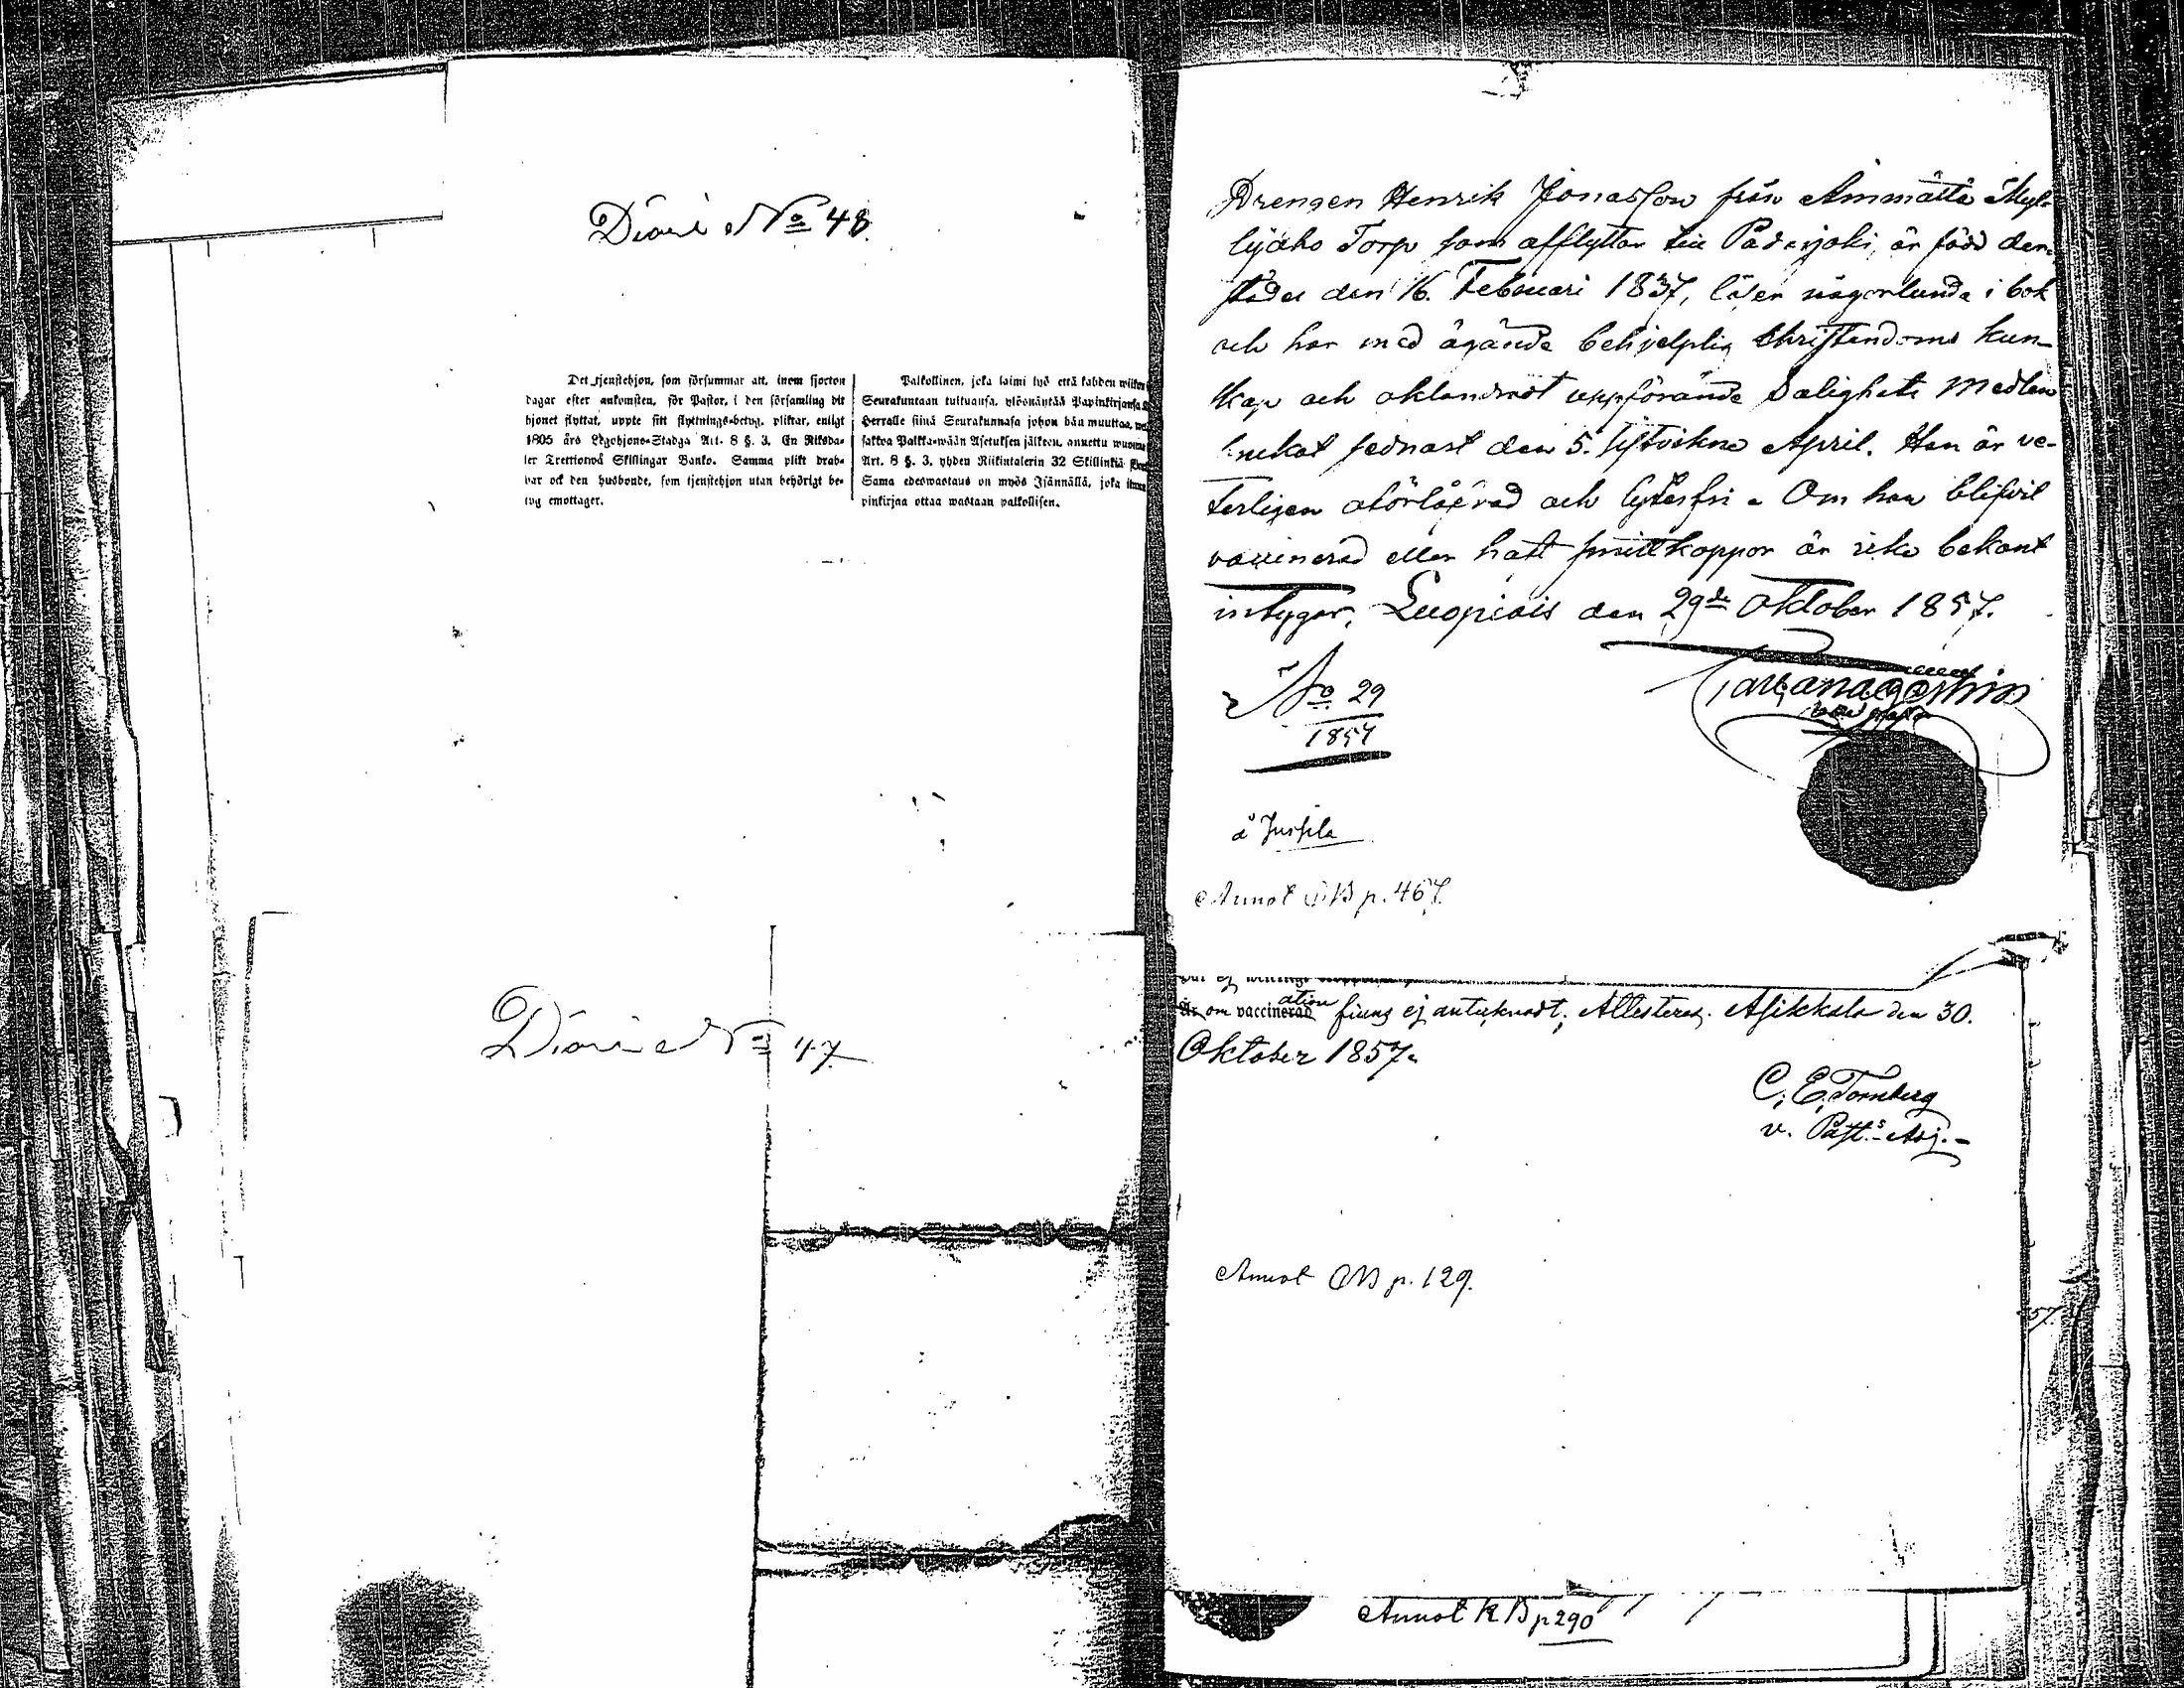 Diarie No 48
Det tjenstehjon, som försummar att, inom fjorton
dagar efter ankomsten, för Pastor, i den församling dit
hjonet flyttat, uppte sitt flyttnings-betyg, pliktar, enligt
1805 års Legohjons-Stadga Art. 8 §. 3. En Riksda-
ler Trettiotwå Skillingar Banko. Samma plikt drab-
bar ock den husbonde, som tjenstehjon utan behörigt be-
tyg emottager.
Palkollinen, joka laimi lyö että kahden wiikon
Seurakuntaan tultuansa, ylösnäytää Papinkirjansa
Herralle siinä Seurakunnasa johon hän muuttaa,
sakkoa Palkka-wään Asetuksen jälkeen, annettu wuonna
Art. 8 §. 3. yhden Riikintalerin 32 Skillinkiä
Sama edeswastaus on myös Isännällä, joka ilman
pinkirjaa ottaa wastaan palkollisen.
Diarie No 47
Drengen Henrik Jonasson från Ammättä Myl-
lyaho Torp som afflyttar till Padasjoki, är född der-
städes den 16. Februari 1837, läser någorlunda i bok
och har med ägande behjelplig Christendoms kun-
skap och oklandradt uppförande Salighets Medlen
nekat sednast den 5. April. Han är ve-
terligen oförlofvad och lytesfri. Om han blifvit
vaccinerad eller haft smittkoppor är icke bekant
intygar, Luopiois den 29de Oktober 1857.
No 29
1857
å Jussila
Annot KB p. 467.
Är om vaccinerad ation finns ej antecknadt; Attesteras. Asikkala den 30.
Oktober 1857.
C. E. Tornberg
v. Past:s Adj.
Annot KB p. 129.
57.
Annot KB p 290